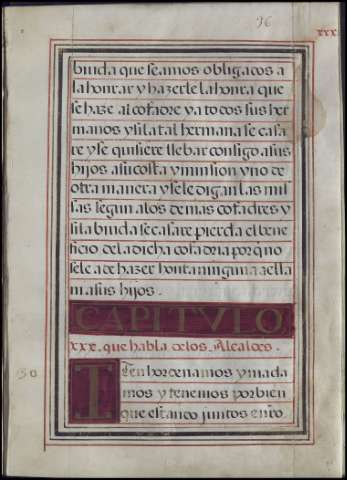 96
xxx
biuda que seamos obligados a
la honrar y hazerle la honra que
se haze al cofadre y a todos sus her
manos y si la tal hermana se casa
re y se quisiere llebar consigo a sus
hijos a su costa y mision y no de
otra manera y se le digan las mis
sas segun a los demas cofadres y
si la biuda se casare pierda el bene
ficio de la dicha cofadria porq̃ no
se le a de hazer honra ninguna a ella
ni a sus hijos.
CAPITVLO
xxx. que habla de los. Alcaldes.
30
ITen hordenamos y manda
mos y tenemos por bien
que estando juntos en n͂ro